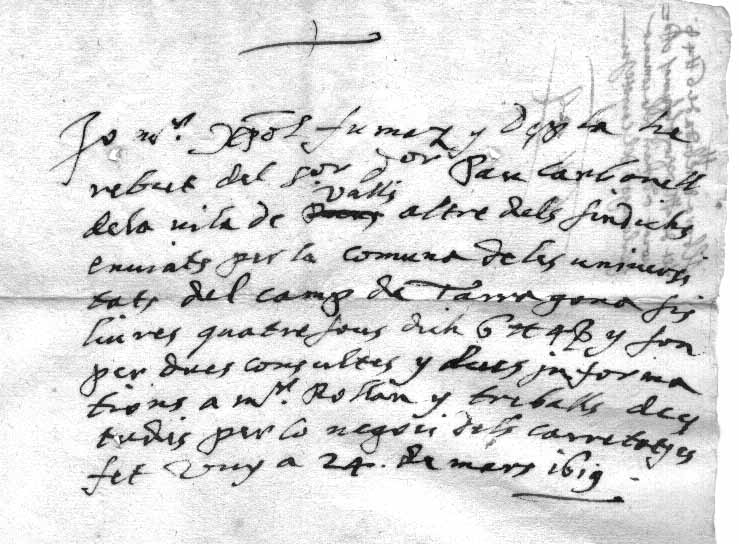 Jo mr. Xpõl fumaz y Desca he
rebut del sor dor Pau Carbonell
dela vila de Valls altre dels sindichs
enuiats per la comuna deles uniuersi
tats del camp de Tarragona sis
liures quatre sous dich 6 ₶ 4 ß y son
per dues consultes y dues informa
tions a mr. Rossan y treballs des
tudis per lo negoci dels carretatjes
fet vuy a 24. de mars 1619.